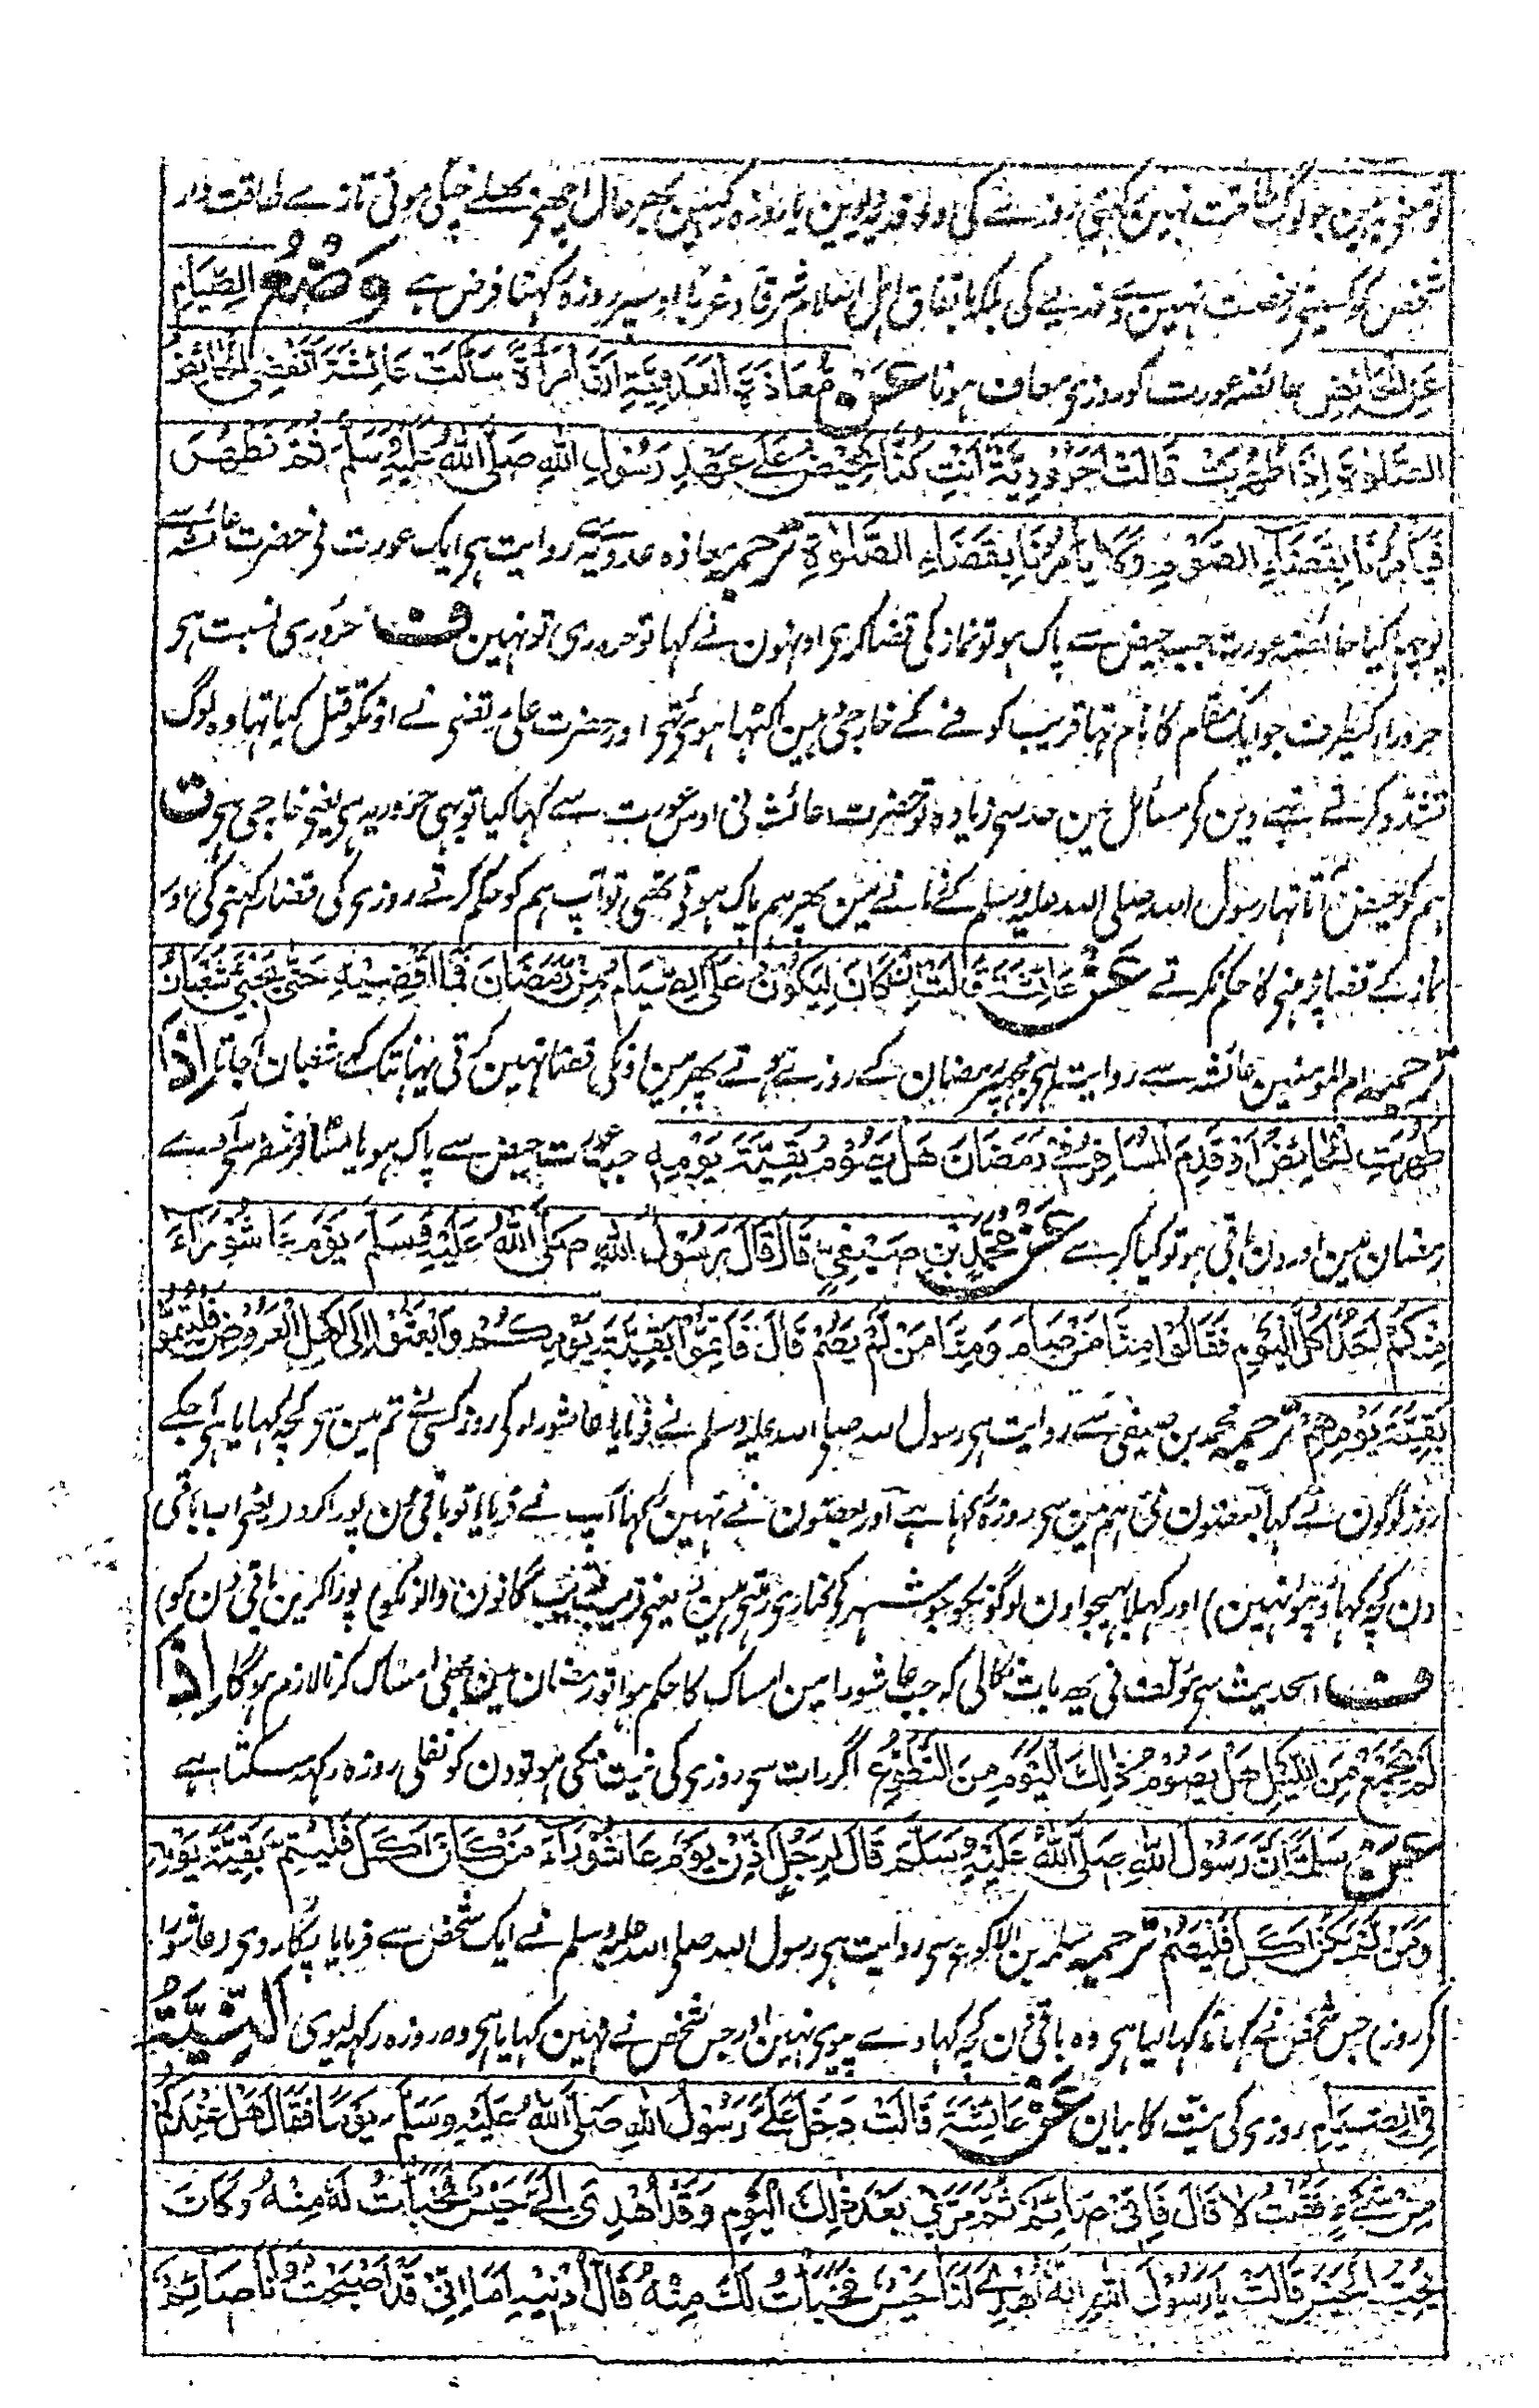 تو معنی یہ ہین جو لوگ طاقت نہین رکھتے روزے کی اور وہ فدیہ دیوین یا روزہ رکھین بہرحال اچھے بھلے چنگی موٹی تازے طاقت دار
شخص کو کسی رخصت نہین ہے فدیے کی بلکہ باتفاق اہل اسلام شرقا و غربا اوسپر روزہ رکھنا فرض ہے وَضْعُ الصِّيَامِ
عَنِ الْحَائِضِ حائضہ عورت کو روزی معاف ہونا عَنْ مُعَاذَةَ الْعَدَوِيَّةِ اَنَّ امْرَأَةً سَأَلَتْ عَائِشَةَ اَتَقْضِى الْحَائِضُ
الصَّلٰوةَ اِذَا طَهُرَتْ قَالَتْ اَحَرُوْرِيَّةٌ اَنْتِ كُنَّا نَحِيْضُ عَلٰى عَهْدِ رَسُوْلِ اللهِ صَلَّى اللهُ عَلَيْهِ وَسَلَّمَ ثُمَّ نَطْهُرُ
فَيَأْمُرُنَا بِقَضَاءِ الصَّوْمِ وَلَا يَأْمُرُنَا بِقَضَاءِ الصَّلٰوةِ ترجمہ معاذہ عدویہ سے روایت ہی ایک عورت نی حضرت عائشہ سے
پوچھا کیا حائضہ عورت جب حیض سے پاک ہو تو نماز کی قضا کری اونہون نے کہا تو حروری تو نہین ف حروری نسبت ہی
حرورا کیطرف جو ایک مقام کا نام تہا قریب کوفے کے خارجی وہین اکٹہا ہوئی تھی اور حضرت علی مرتضی نے اونکو قتل کیا تہا وہ لوگ
تشدد کرتے تہے دین کو مسائل مین حد سی زیادہ تو حضرت عائشہ نی اوس عورت سے کہا کیا تو بہی حروریہ ہی یعنی خارجی ہی ت
ہم کو حیض آتا تہا رسول الله صلی الله علیہ وسلم کے زمانے مین پھر ہم پاک ہوتی تھی تو آپ ہم کو حکم کرتے روزی کی قضا رکہنی کی اور
نماز کے قضا پڑہنی کا حکم نکرتے عَنْ عَائِشَةَ قَالَتْ اِنْ كَانَ لَيَكُوْنُ عَلَىَّ الصِّيَامُ مِنْ رَمَضَانَ فَمَا اَقْضِيْهِ حَتّٰى يَجِيْئَ شَعْبَانُ
ترجمہ ام المومنین عائشہ سے روایت ہی مجہپر رمضان کے روزے ہوتے پھر مین اونکی قضا نہین کرتی یہانتک کہ شعبان آجاتا اِذَا
طَهُرَتِ الْحَائِضُ اَوْ قَدِمَ الْمُسَافِرُ فِىْ رَمَضَانَ هَلْ يَصُوْمُ بَقِيَّةَ يَوْمِهٖ جب عورت حیض سے پاک ہو یا مسافر سفر سی آوے
رمضان مین اور دن باقی ہو تو کیا کرے عَنْ مُحَمَّدِ بْنِ صَيْفِيٍّ قَالَ قَالَ رَسُوْلُ اللهِ صَلَّى اللهُ عَلَيْهِ وَسَلَّمَ يَوْمَ عَاشُوْرَاءَ
مِنْكُمْ اَحَدٌ اَكَلَ الْيَوْمَ فَقَالُوْا مِنَّا مَنْ صَامَ وَمِنَّا مَنْ لَمْ يَصُمْ قَالَ فَاَتِمُّوْا بَقِيَّةَ يَوْمِكُمْ وَابْعَثُوْا اِلٰى اَهْلِ الْعَرُوْضِ فَلْيُتِمُّوْا
بَقِيَّةَ يَوْمِهِمْ ترجمہ محمد بن صیفی سے روایت ہی رسول الله صلی الله علیہ وسلم نے فرمایا عاشورا کی روز کسی نے تم مین سی کچہ کہایا ہی آجکے
روز لوگون نے کہا بعضون نی ہم مین سی روزہ رکہا ہے اور بعضون نے نہین رکہا آپ نے فرمایا تو باقی دن پورا کرو (یعنی اب باقی
دن کچہ کہاؤ پیو نہین) اور کہلا بہیجو اون لوگونکو جو شہر کی کناری رہتی ہین (یعنی قریب قریب گانون والونکو) پورا کرین باقی دن کو)
ف اسحدیث سی مؤلف نی یہ بات نکالی کہ جب عاشورا مین امساک کا حکم ہوا تو رمضان مین بھی امساک کرنا لازم ہوگا اِذَا
لَمْ يُجْمِعْ مِنَ اللَّيْلِ هَلْ يَصُوْمُ ذٰلِكَ الْيَوْمَ مِنَ التَّطَوُّعِ اگر رات سی روزی کی نیت نکی ہو تو دن کو نفلی روزہ رکہہ سکتا ہے
عَنْ سَلَمَةَ اَنَّ رَسُوْلَ اللهِ صَلَّى اللهُ عَلَيْهِ وَسَلَّمَ قَالَ لِرَجُلٍ اَذِّنْ يَوْمَ عَاشُوْرَاءَ مَنْ كَانَ اَكَلَ فَلْيُتِمَّ بَقِيَّةَ يَوْمِهٖ
وَمَنْ لَمْ يَكُنْ اَكَلَ فَلْيَصُمْ ترجمہ سلمہ بن الاکوع سی روایت ہی رسول الله صلی الله علیہ وسلم نے ایک شخص سے فرمایا پکار دی (عاشورا
کی روز) جس شخص نے کہانا کہا لیا ہی وہ باقی دن کچہ کہاوے پیوی نہین اور جس شخص نے نہین کہایا ہی وہ روزہ رکہہ لیوی اَلنِّيَّةُ
فِى الصِّيَامِ روزی کی نیت کا بیان عَنْ عَائِشَةَ قَالَتْ دَخَلَ عَلَىَّ رَسُوْلُ اللهِ صَلَّى اللهُ عَلَيْهِ وَسَلَّمَ يَوْمًا فَقَالَ هَلْ عِنْدَكُمْ
مِنْ شَىْءٍ فَقُلْتُ لَا قَالَ فَاِنِّىْ صَائِمٌ ثُمَّ مَرَّ بِىْ بَعْدَ ذٰلِكَ الْيَوْمِ وَقَدْ اُهْدِىَ اِلَىَّ حَيْسٌ فَخَبَأْتُ لَهٗ مِنْهُ وَكَانَ
يُحِبُّ الْحَيْسَ قَالَتْ يَا رَسُوْلَ اللهِ اِنَّهٗ اُهْدِىَ لَنَا حَيْسٌ فَخَبَأْتُ لَكَ مِنْهُ قَالَ اَدْنِيْهِ اَمَا اِنِّىْ قَدْ اَصْبَحْتُ وَاَنَا صَائِمٌ